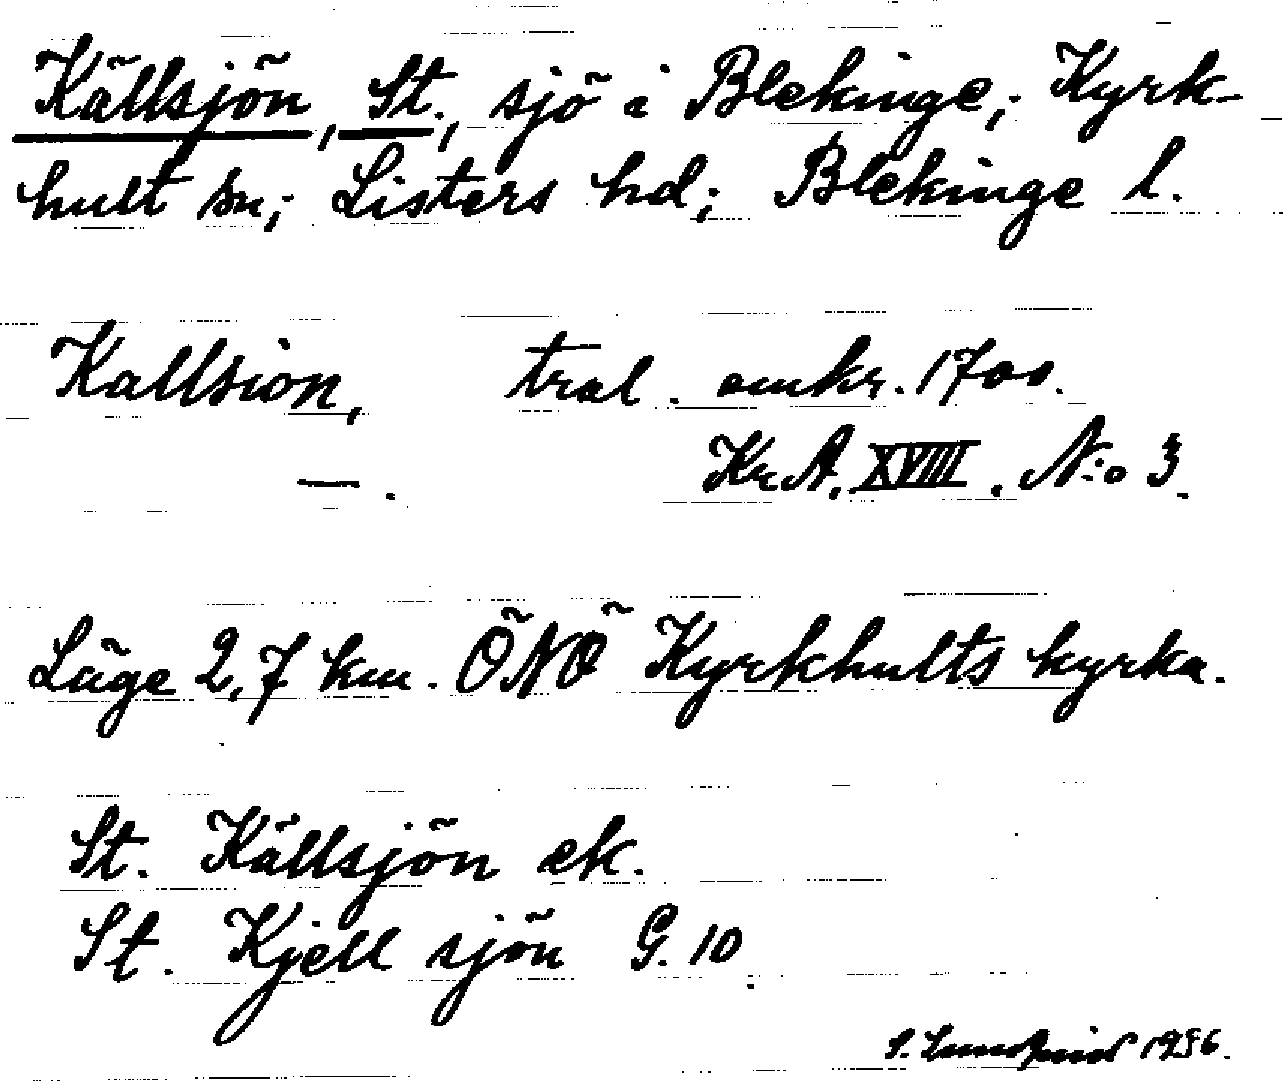 Källsjön, St., sjö i Blekinge; Kyrk-
hult sn; Listers hd; Blekinge l.
Kallsion, tral. omkr. 1700.
— . Kr.A. XVIII. N:o 3.
Läge 2,7 km. ÖNÖ Kyrkhults kyrka.
St. Källsjön ek.
St. Kjell sjön G. 10.
S. Lundqvist 1936.